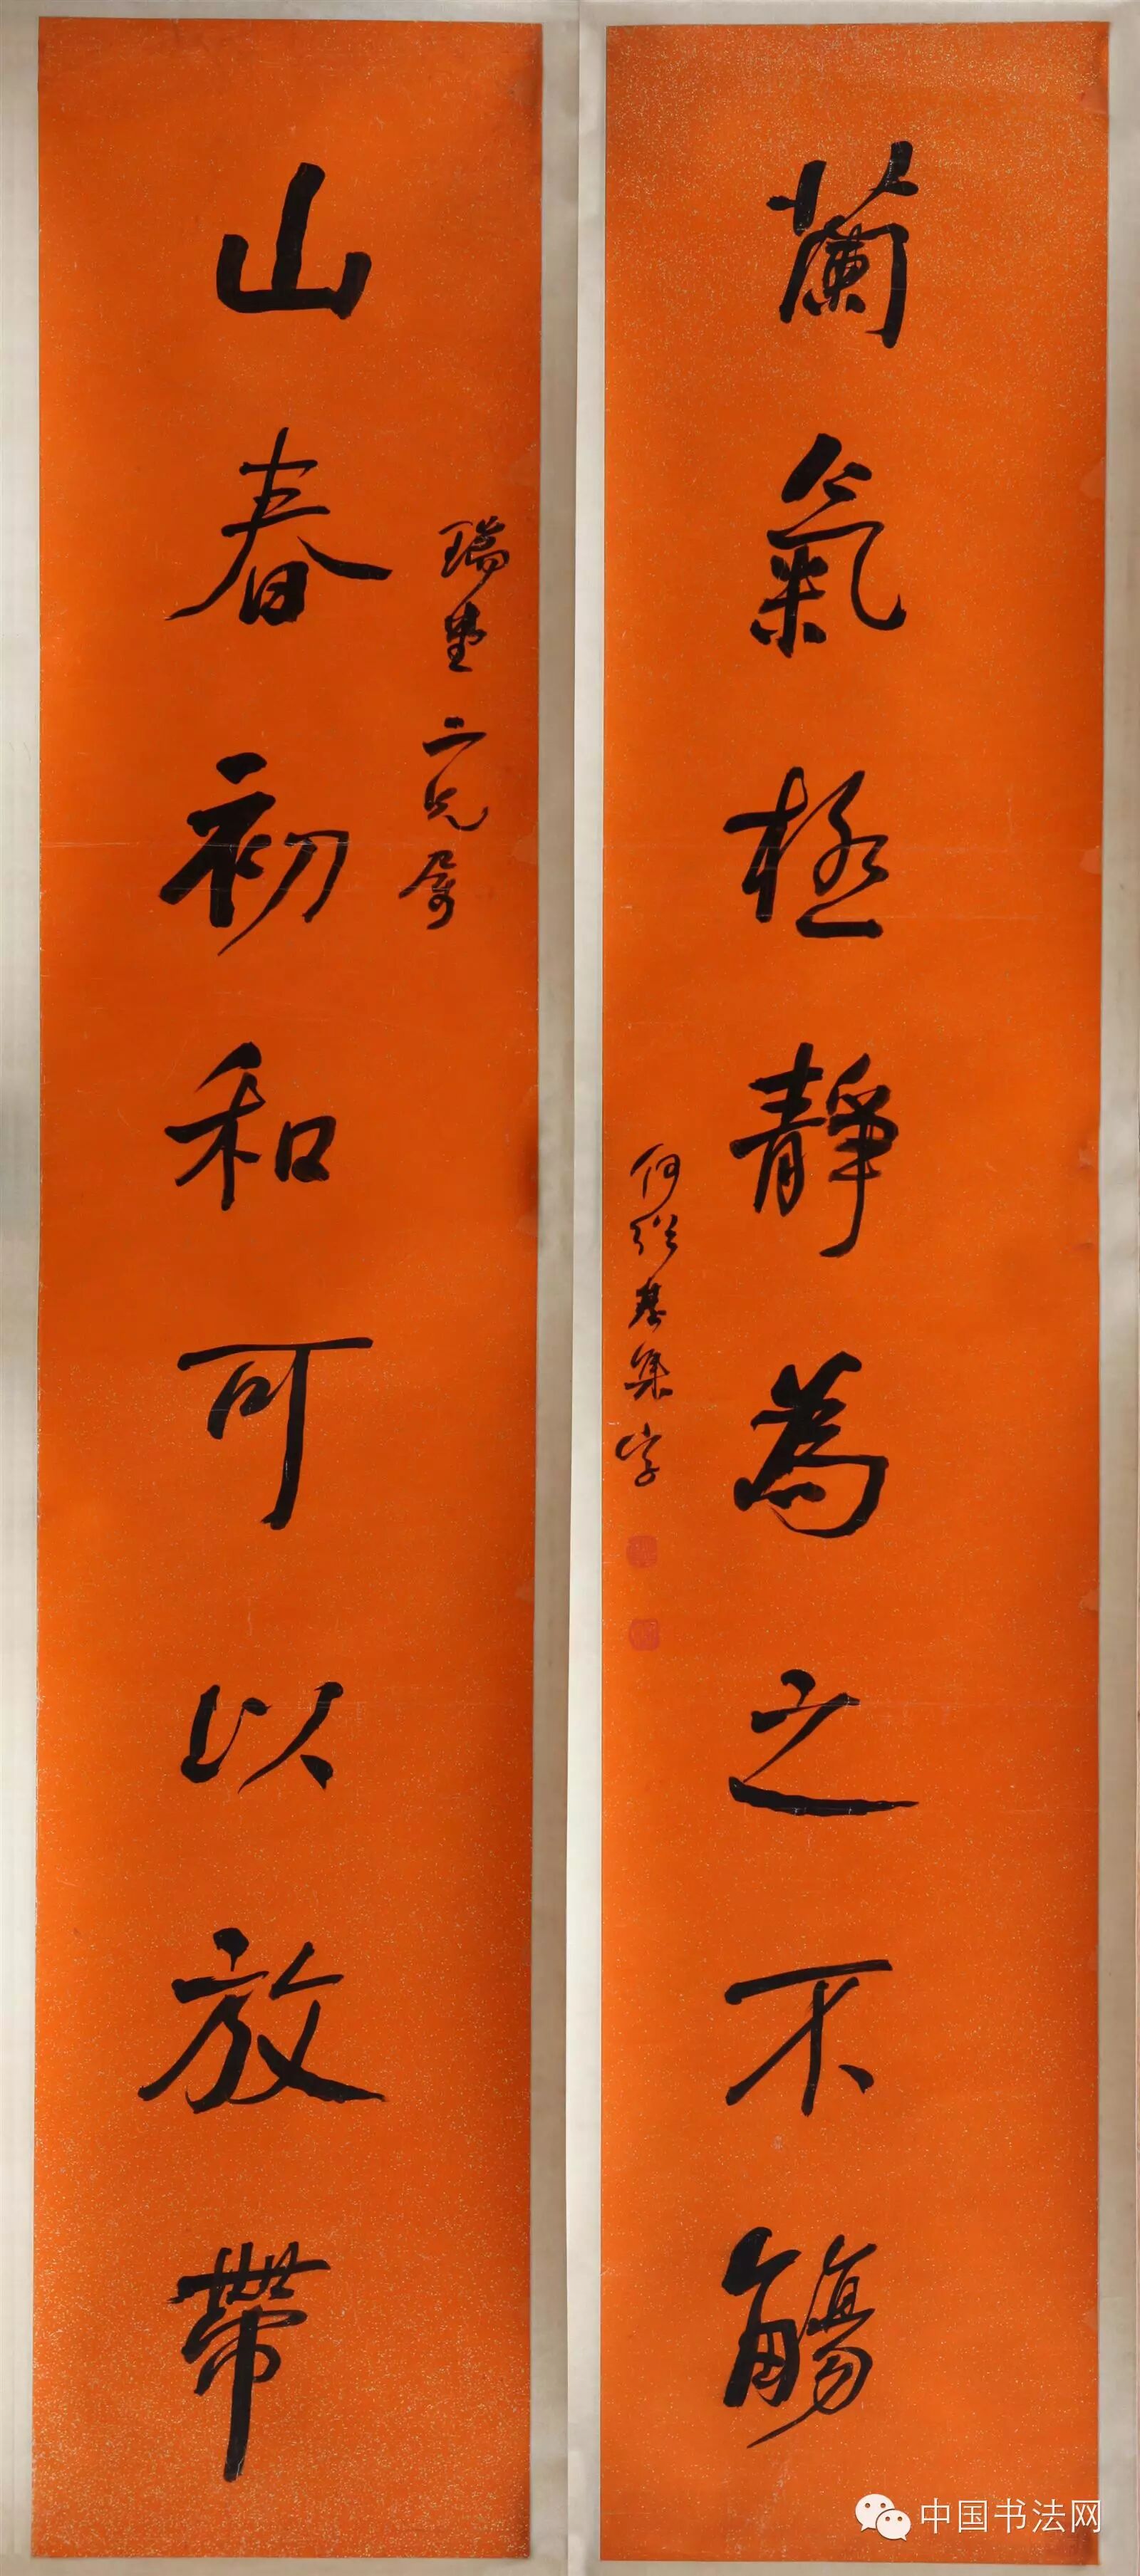 山春初和可以放帶
瑞生二兄屬
蘭氣極靜為之不觴
何紹基集字
中国书法网